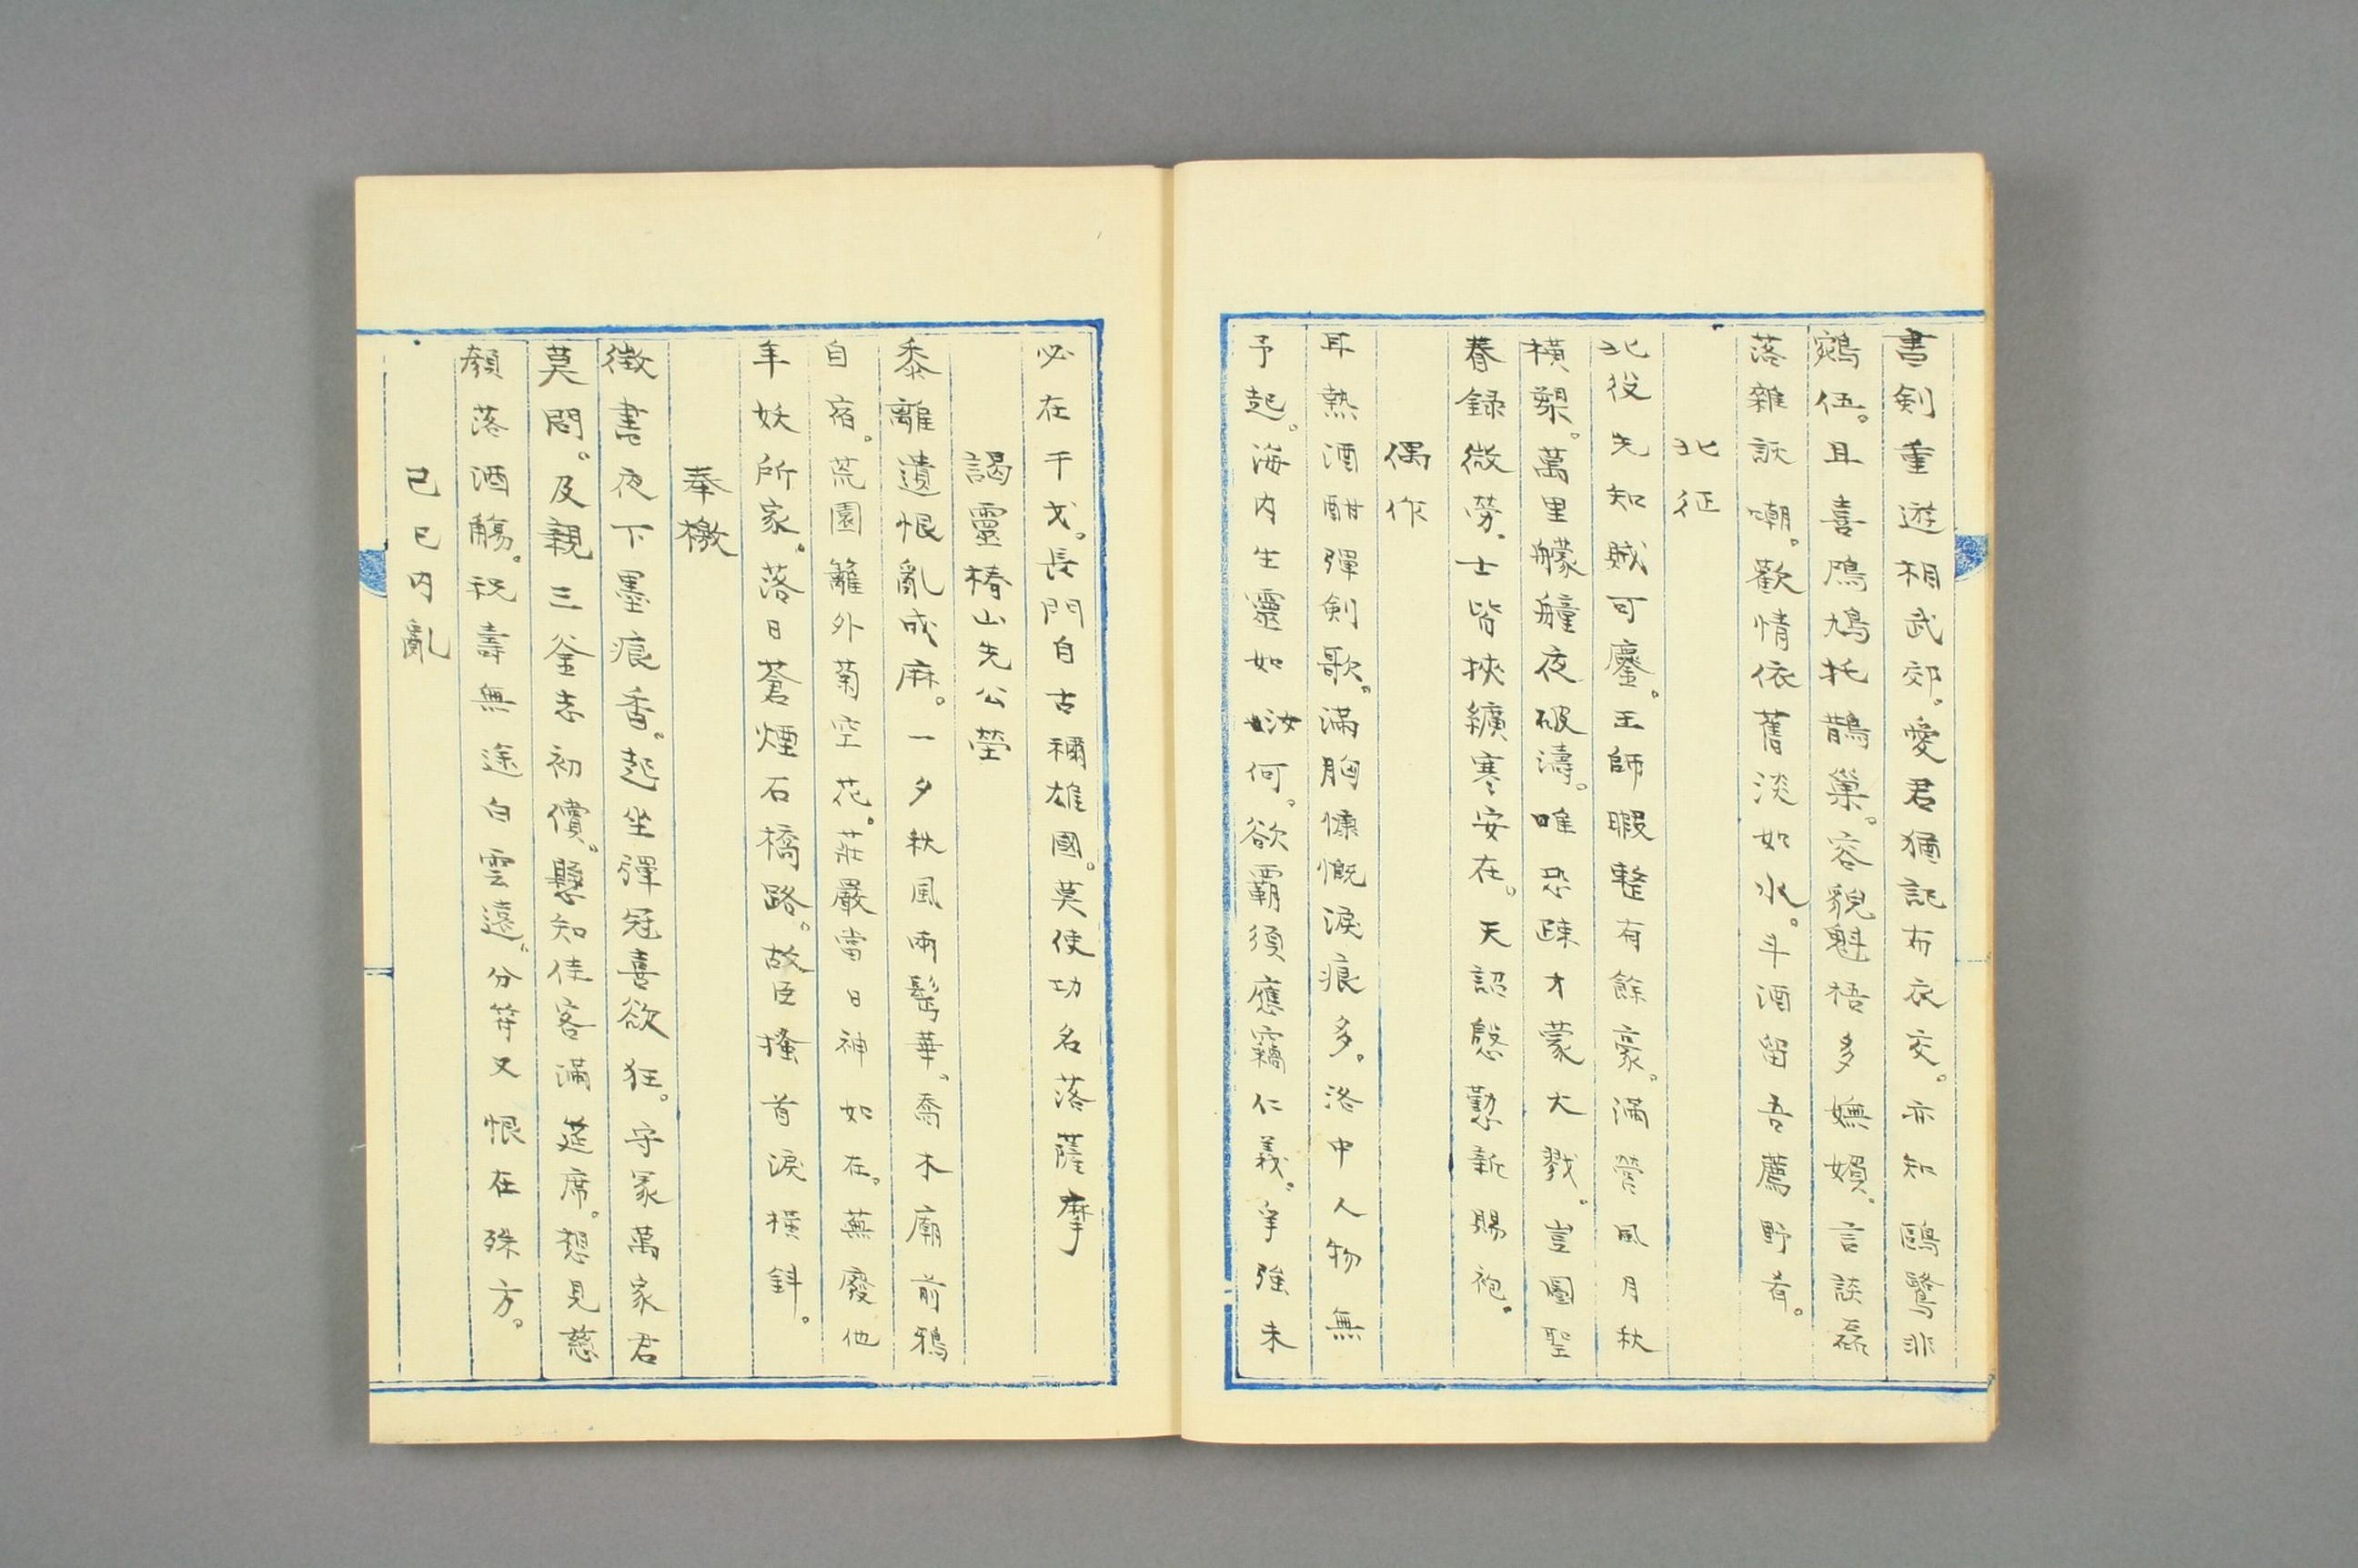 書剣重遊相武郊。愛君猶記布衣交。亦知鷗鷺非
鵷伍。且喜鳲鳩托鵲巢。容貌魁梧多嫵嬪。言談磊
落雜詼嘲。歡情依舊淡如水。斗酒留吾薦野肴。
北征
北役先知賊可鏖。王師暇整有餘豪。滿營風月秋
橫槊。萬里艨艟夜破濤。唯恐疎才蒙大戮。豈圖聖
眷録微勞。士皆挾纊寒安在。天詔慇懃新賜袍。
偶作
耳熱酒酣彈剣歌。滿胸慷慨淚痕多。洛中人物無
予起。海内生靈如汝何。欲覇須應竊仁義。爭強未
必在干戈。長門自古稱雄國。莫使功名落薩摩
謁靈椿山先公塋
黍離遺恨亂成麻。一夕秋風兩髩華。喬木廟前鴉
自宿。荒園籬外菊空花。莊嚴當日神如在。蕪廢他
年妖所家。落日蒼煙石橋路。故臣搔首淚橫斜。
奉檄
徵書夜下墨痕香。起坐彈冠喜欲狂。守冢萬家君
莫問。及親三釜志初償。懸知佳客滿筵席。想見慈
顏落酒觴。祝壽無途白雲遠。分符又恨在殊方。
己巳内亂